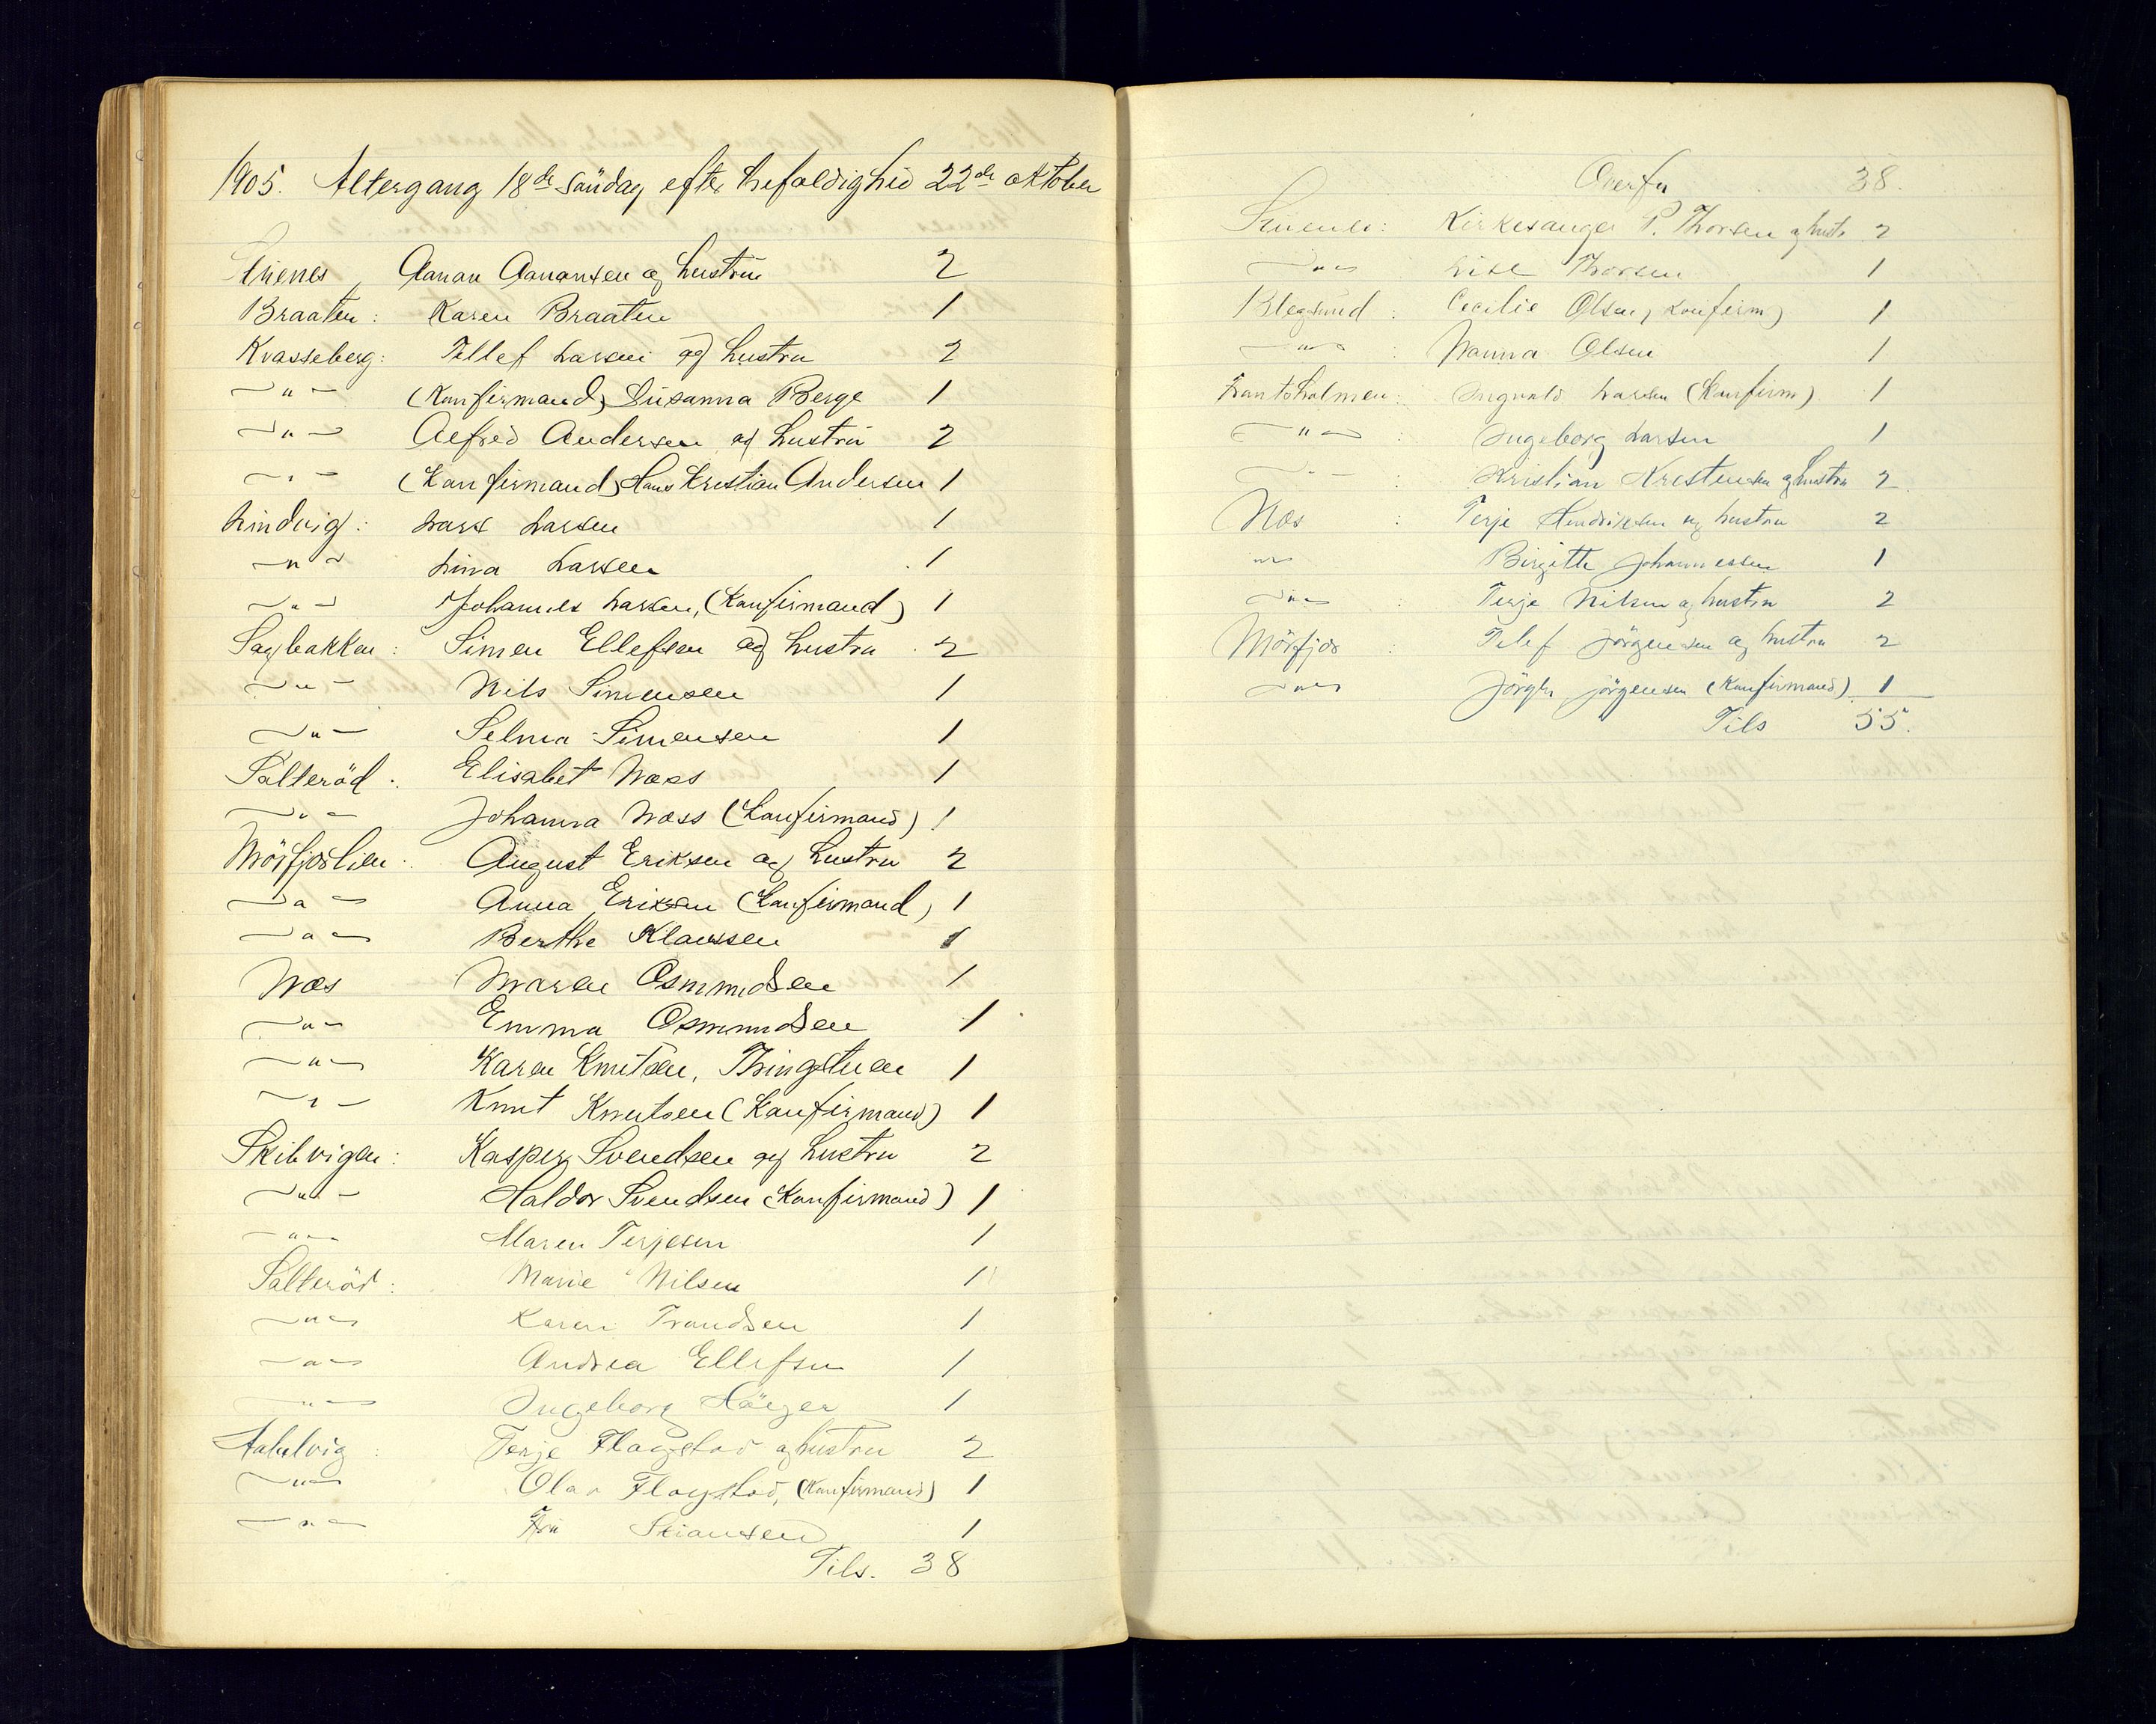 1905. Altergang 18de søndag efter trefoldighed 22de oktober
Stuenes Aanan Aanansen og hustru 2
Braaten: Karen Braaten 1
Kvasseberg: Tellef Larsen og hustru 2
—"— (Konfirmand) Susanna Berge 1
—"— Alfred Andersen og hustru 2
—"— (Konfirmand) Hans Kristian Andersen 1
Lindvig: Lars Larsen 1
—"— Lina Larsen 1
—"— Johannes Larsen, (Konfirmand) 1
Sagbakken: Simen Ellefsen og hustru 2
—"— Nils Simensen 1
—"— Selma Simensen 1
Salteröd: Elisabet Næss 1
—"— Johanna Næss (Konfirmand) 1
Mörfjorlien: August Eriksen og hustru 2
—"— Anna Eriksen (Konfirmand) 1
—"— Berthe Klaussen 1
Næs Maren Osmundsen 1
—"— Emma Osmundsen 1
—"— Karen Knutsen, Thingstuen 1
—"— Knut Knutsen (Konfirmand) 1
Skibvigen: Kasper Svendsen og hustru 2
—"— Haldor Svendsen (Konfirmand) 1
—"— Maren Terjesen 1
Salteröd: Marie Nilsen 1
—"— Karen Trondsen 1
—"— Andrea Ellefsen 1
—"— Ingeborg 1
Terje Flagstad og hustru 2
—"— Olav Flagstad, (Konfirmand) 1
—"— Fru Stiansen 1
Tils. 38
Overfør 38.
Stuenes: Kirkesanger P. Thorsen og hustr 2
—"— Lise Thorsen 1
Blegsund: Cecilie Olsen, (Konfirm) 1
—"— : Nanna Olsen 1
Frantsholmen: Ingvald Larsen (Konfirm) 1
—"— : Ingeborg Larsen 1
—"— : Kristian Kristensen og hustru 2
Næs : Terje Hendriksen og hustru 2
—"— Birgitte Johannessen 1
—"— : Terje Nilsen og hustru 2
Mörfjor : Telef Jörgensen og hustru 2
—"— Jörgen Jörgensen (Konfirmand) 1
Tils 55.